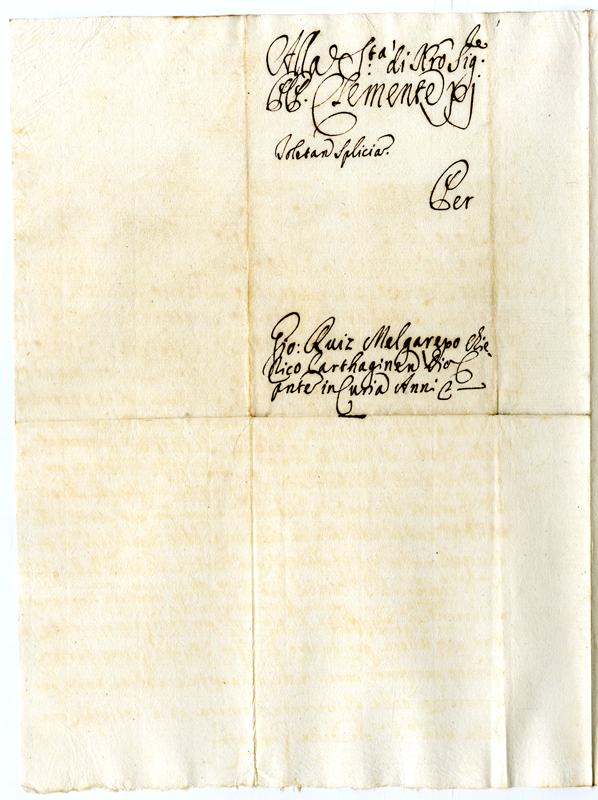 Alla S.tà di Nro Sig.re
PP. Clemente XI
Toletan Splicia.
Per
Gio: Ruiz Melgarepo Chie-
rico Carthaginen
ante in Curia Anni